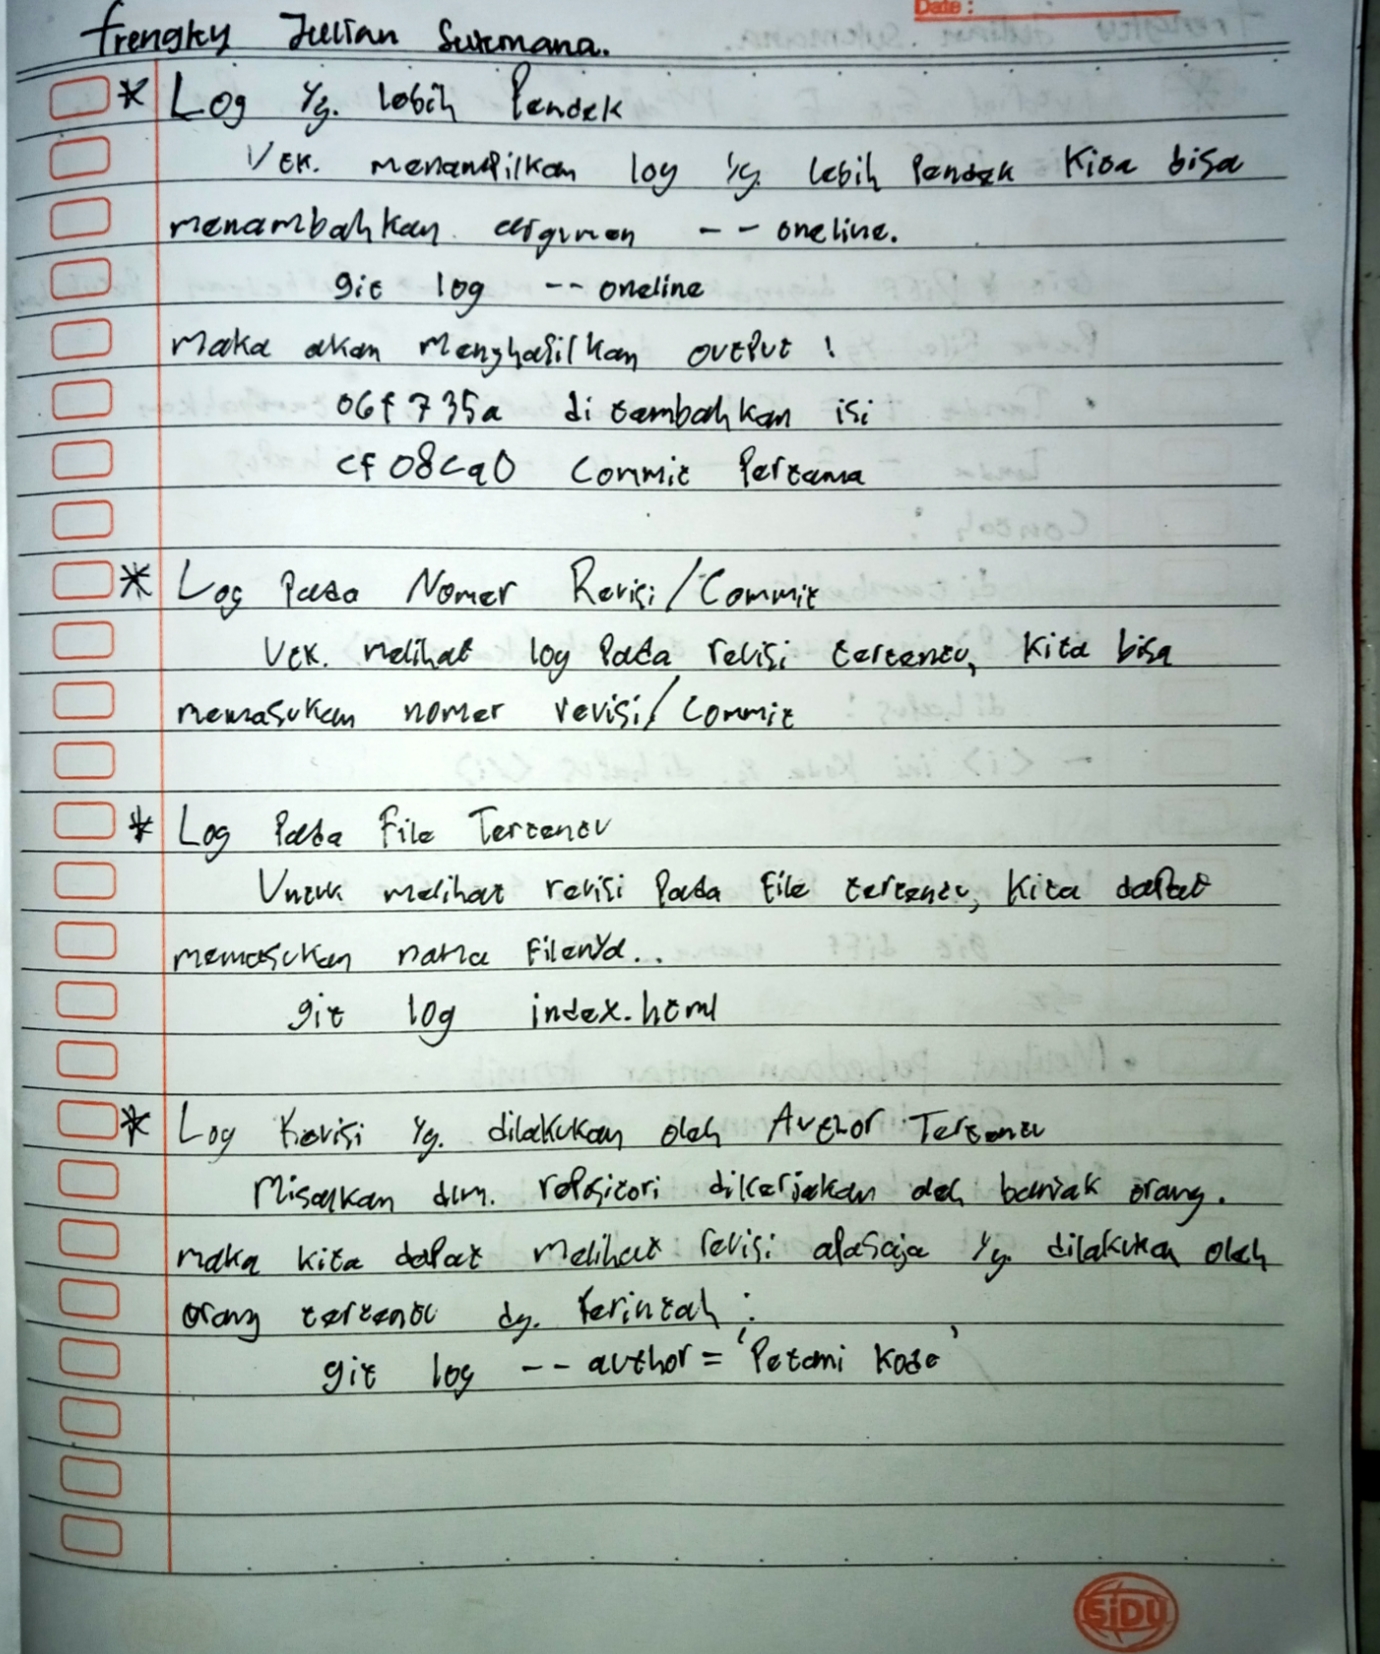 Date :
Frengky Julian Sukmana.
* Log yg. lebih Pendek
Utk. menampilkan log yg. lebih Pendek Kita bisa
menambahkan argumen -- oneline.
git log -- oneline
Maka akan menghasilkan output :
06f735a di tambahkan isi
cf08ca0 Commit Pertama
* Log Pada Nomer Revisi/Commit
Utk. melihat log Pada revisi tertentu, Kita bisa
memasukan nomer revisi/Commit
* Log Pada File Tertentu
Untuk melihat revisi Pada File tertentu, Kita dapat
memasukan nama Filenya..
git log index.html
* Log Revisi yg. dilakukan oleh Author Tertentu
Misalkan dlm. repositori dikerjakan oleh banyak orang.
maka kita dapat melihat revisi apasaja yg. dilakukan oleh
orang tertentu dg. Perintah :
git log -- author = 'Petani Kode'
SiDU